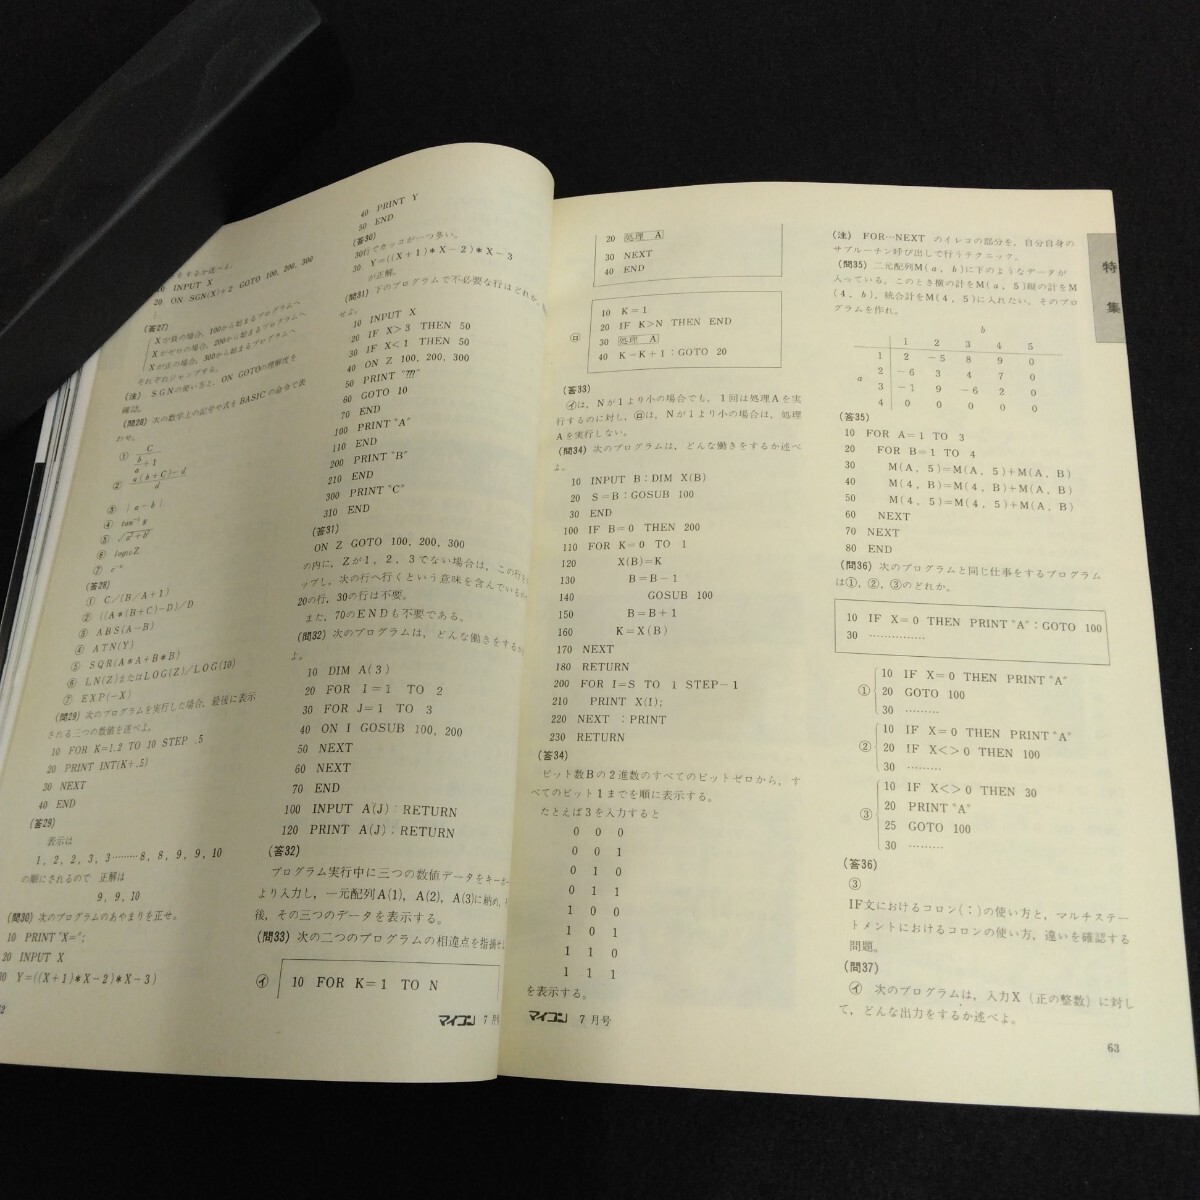 をするか述べよ.
10 INPUT X
20 ON SGN(X)+2 GOTO 100, 200, 300
(答27)
Xが負の場合, 100から始まるプログラムへ
Xがゼロの場合, 200から始まるプログラムへ
Xが正の場合, 300から始まるプログラムへ
それぞれジャンプする.
(注) SGNの使い方と, ON GOTOの理解度を
確認.
(問28) 次の数学上の記号や式をBASICの命令で表
わせ.
① C
b
a +1
② a(b+C)-d
d
③ |a-b|
④ tan⁻¹y
⑤ √a²+b²
⑥ log₁₀Z
⑦ e⁻ˣ
(答28)
① C/(B/A+1)
② ((A*(B+C)-D)/D
③ ABS(A-B)
④ ATN(Y)
⑤ SQR(A*A+B*B)
⑥ LN(Z)またはLOG(Z)/LOG(10)
⑦ EXP(-X)
(問29) 次のプログラムを実行した場合, 最後に表示
される三つの数値を述べよ.
10 FOR K=1.2 TO 10 STEP .5
20 PRINT INT(K+.5)
30 NEXT
40 END
(答29)
表示は
1, 2, 2, 3, 3………8, 8, 9, 9, 10
の順にされるので 正解は
9, 9, 10
(問30) 次のプログラムのあやまりを正せ.
10 PRINT "X=";
20 INPUT X
30 Y=((X+1)*X-2)*X-3)
40 PRINT Y
50 END
(答30)
30行でカッコが一つ多い.
30 Y=((X+1)*X-2)*X-3
が正解.
(問31) 下のプログラムで不必要な行はどれか.
せよ.
10 INPUT X
20 IF X>3 THEN 50
30 IF X<1 THEN 50
40 ON Z 100, 200, 300
50 PRINT "???"
60 GOTO 10
70 END
100 PRINT "A"
110 END
200 PRINT "B"
210 END
300 PRINT "C"
310 END
(答31)
ON Z GOTO 100, 200, 300
の内に, Zが1, 2, 3でない場合は, この行を
ップし, 次の行へ行くという意味を含んでいる
20の行, 30の行は不要.
また, 70のENDも不要である.
(問32) 次のプログラムは, どんな働きをするか
よ.
10 DIM A(3)
20 FOR I=1 TO 2
30 FOR J=1 TO 3
40 ON I GOSUB 100, 200
50 NEXT
60 NEXT
70 END
100 INPUT A(J): RETURN
120 PRINT A(J): RETURN
(答32)
プログラム実行中に三つの数値データをキーボー
より入力し, 一元配列A(1), A(2), A(3)に納め,
後, その三つのデータを表示する.
(問33) 次の二つのプログラムの相違点を指摘せよ
㋑ 10 FOR K=1 TO N
マイコン 7月
20 処理 A
30 NEXT
40 END
㋺
10 K=1
20 IF K>N THEN END
30 処理 A
40 K=K+1:GOTO 20
(答33)
㋑は, Nが1より小の場合でも, 1回は処理Aを実
行するのに対し, ㋺は, Nが1より小の場合は, 処理
Aを実行しない.
(問34) 次のプログラムは, どんな働きをするか述べ
よ.
10 INPUT B:DIM X(B)
20 S=B:GOSUB 100
30 END
100 IF B=0 THEN 200
110 FOR K=0 TO 1
120 X(B)=K
130 B=B-1
140 GOSUB 100
150 B=B+1
160 K=X(B)
170 NEXT
180 RETURN
200 FOR I=S TO 1 STEP-1
210 PRINT X(I);
220 NEXT :PRINT
230 RETURN
(答34)
ビット数Bの2進数のすべてのビットゼロから, す
べてのビット1までを順に表示する.
たとえば3を入力すると
0 0 0
0 0 1
0 1 0
0 1 1
1 0 0
1 0 1
1 1 0
1 1 1
を表示する.
マイコン 7月号
(注) FOR…NEXTのイレコの部分を, 自分自身の
サブルーチン呼び出しで行うテクニック.
(問35) 二元配列M(a, b)に下のようなデータが
入っている. このとき横の計をM(a, 5)縦の計をM
(4, b), 統合計をM(4, 5)に入れたい. そのプロ
グラムを作れ.
b
1 2 3 4 5
1 2 -5 8 9 0
2 -6 3 4 7 0
a
3 -1 9 -6 2 0
4 0 0 0 0 0
(答35)
10 FOR A=1 TO 3
20 FOR B=1 TO 4
30 M(A, 5)=M(A, 5)+M(A, B)
40 M(4, B)=M(4, B)+M(A, B)
50 M(4, 5)=M(4, 5)+M(A, B)
60 NEXT
70 NEXT
80 END
(問36) 次のプログラムと同じ仕事をするプログラム
は①, ②, ③のどれか.
10 IF X=0 THEN PRINT "A":GOTO 100
30 ……………
①
10 IF X=0 THEN PRINT "A"
20 GOTO 100
30 ………
②
10 IF X=0 THEN PRINT "A"
20 IF X<>0 THEN 100
30 ………
③
10 IF X<>0 THEN 30
20 PRINT "A"
25 GOTO 100
30 ………
(答36)
③
IF文におけるコロン(:)の使い方と, マルチステー
トメントにおけるコロンの使い方, 違いを確認する
問題.
(問37)
㋑ 次のプログラムは, 入力X (正の整数) に対し
て, どんな出力をするか述べよ.
63
特
集